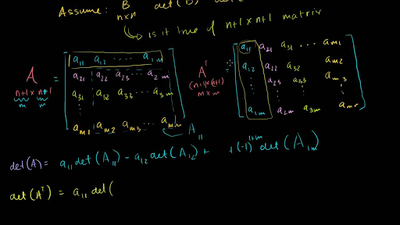 Assume: B det(
n×n
↳ is it true of n+1×n+1 matrix
A = [ a11 a12 ... a1m
a21 a22 a23 ... a2m
a31 a32 a33 ... a3m
am1 am2 am3 ... amm ]
n+1×n+1
m m
A11
A^T
(n+1)×(n+1)
m×m
= [ a11 a21 a31 ... am1
a12 a22 a32 am2
a23 a33 am3
a1m a2m a3m ]
det(A) = a11 det(A11) - a12 det(A12) + +(-1)^1+m det(A1m)
det(A^T) = a11 det(